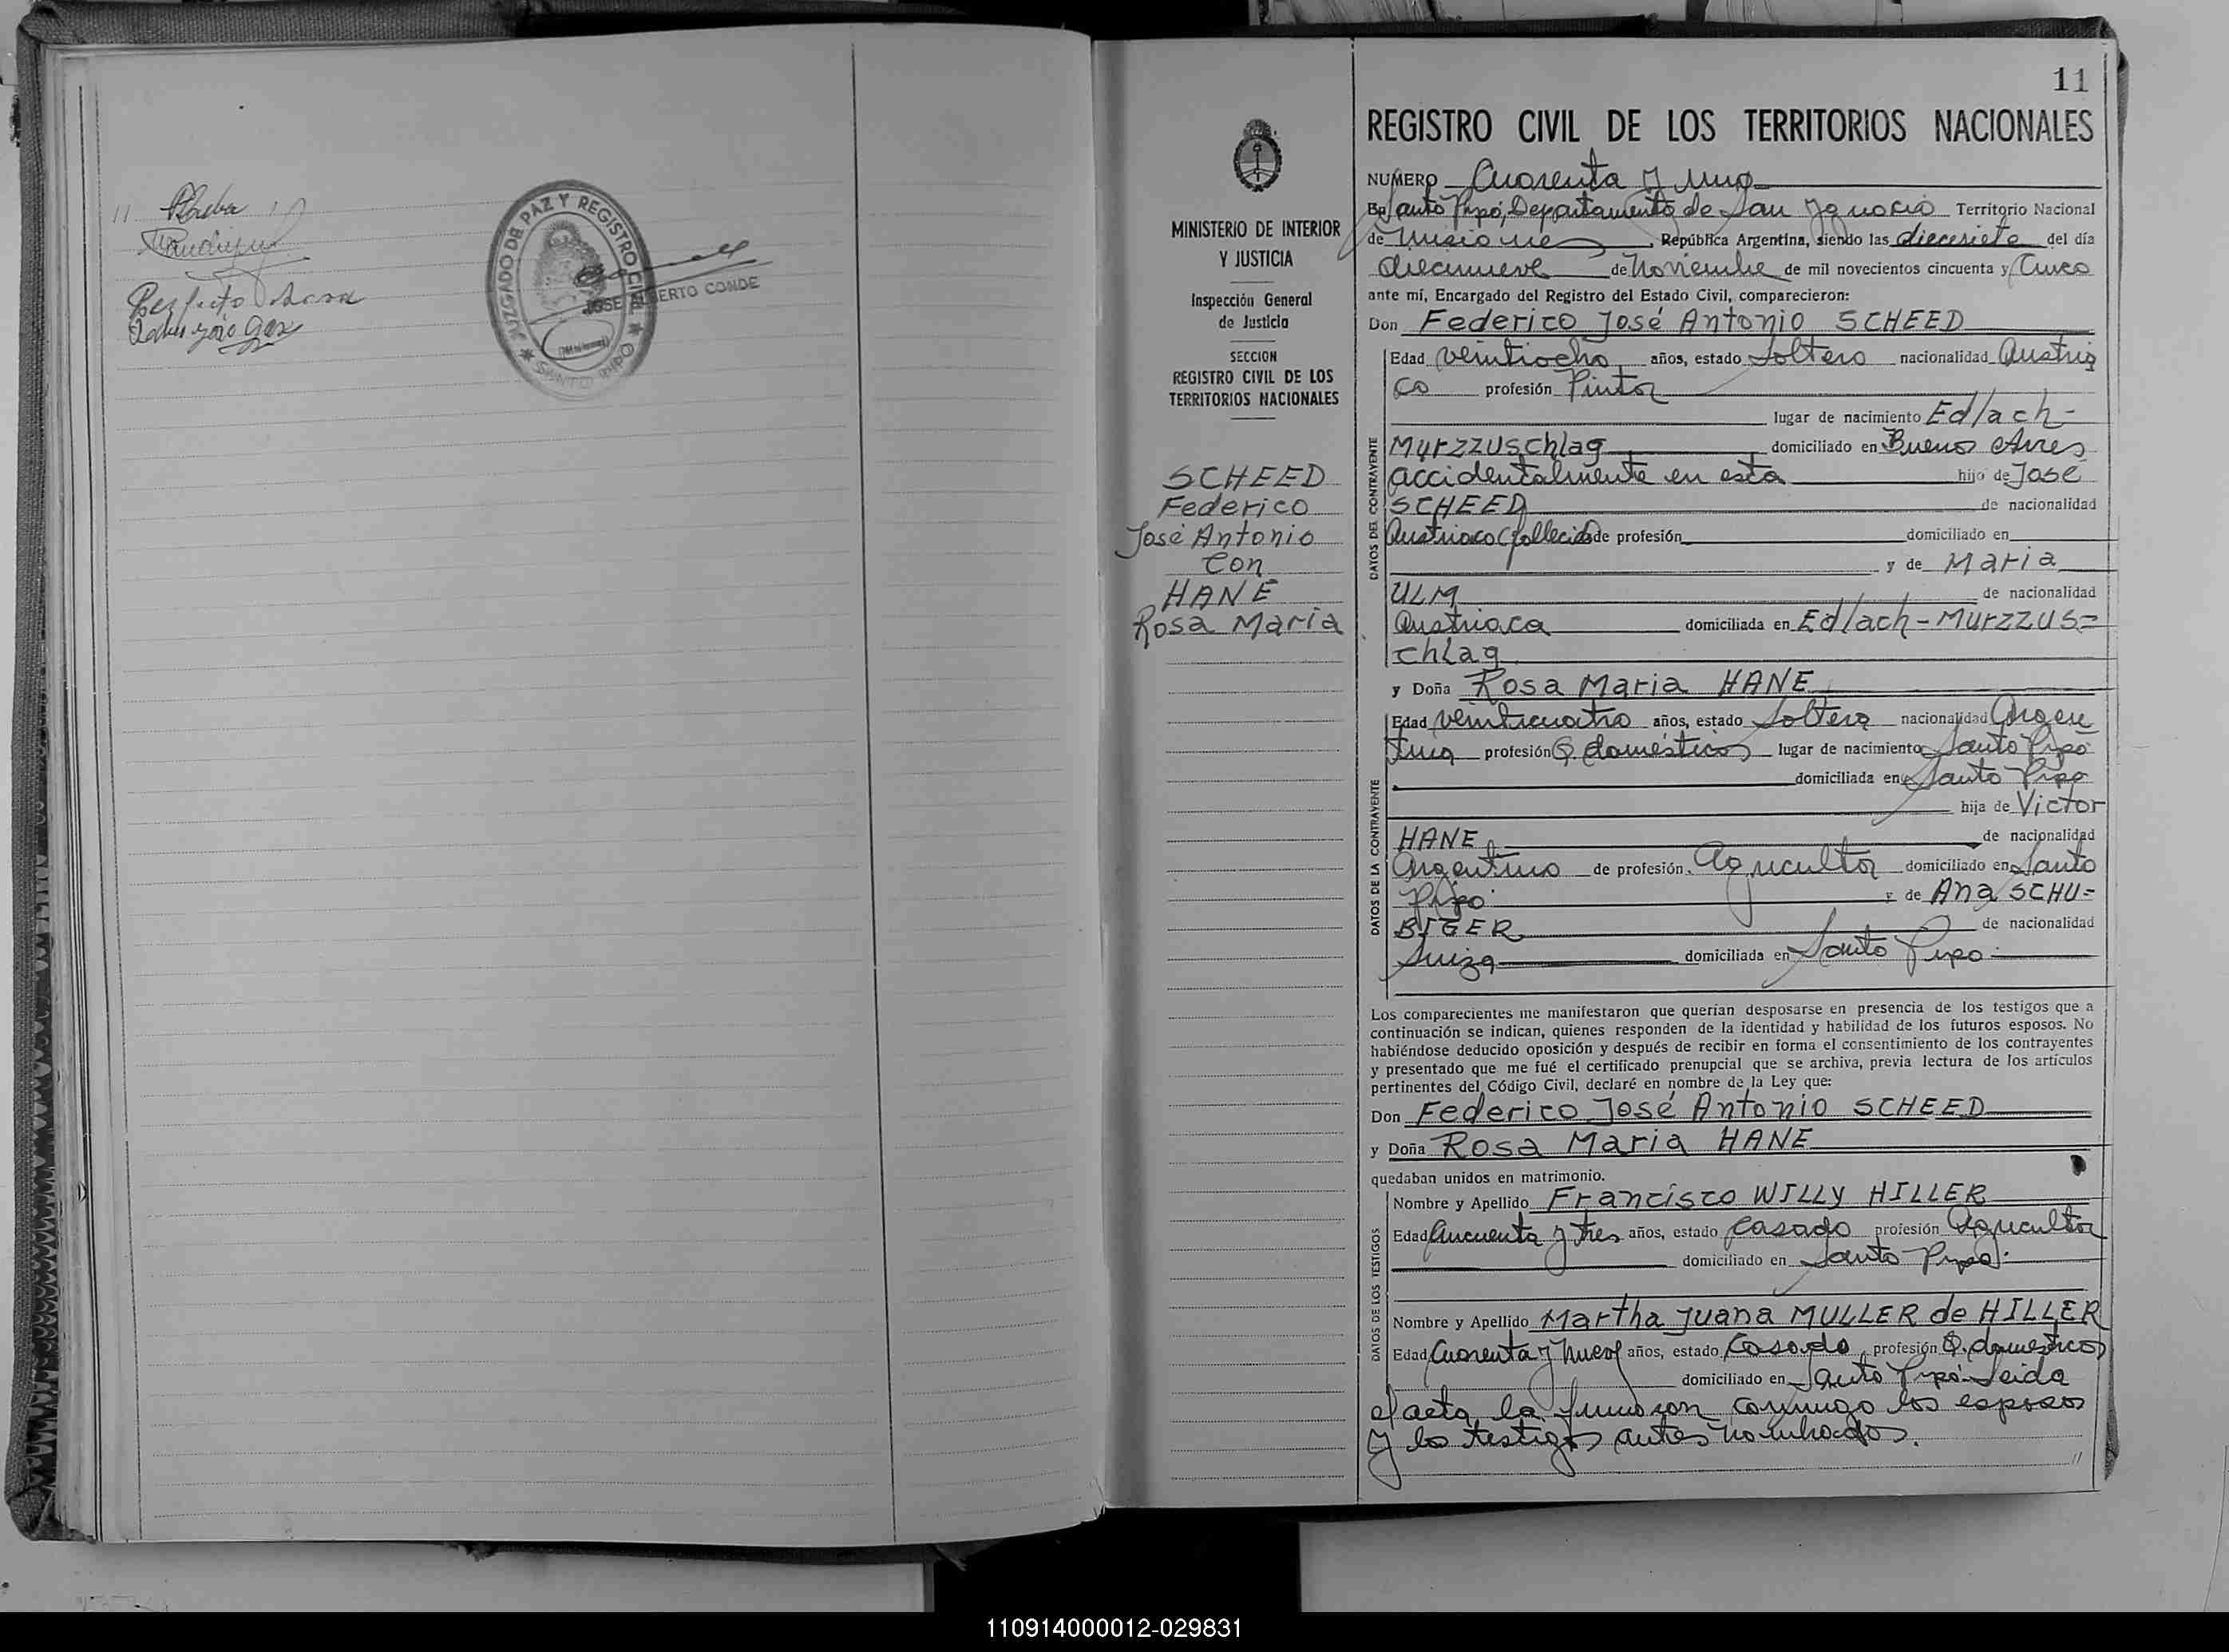 JUZGADO DE PAZ Y REGISTRO CIVIL
JOSE ALBERTO CONDE
11
REGISTRO CIVIL DE LOS TERRITORIOS NACIONALES
MINISTERIO DE INTERIOR
Y JUSTICIA
Inspección General
de Justicia
SECCION
REGISTRO CIVIL DE LOS
TERRITORIOS NACIONALES
SCHEED
Federico
José Antonio
Con
HANE
Rosa Maria
NUMERO Cuarenta y uno
En Santo Pipó, Departamento de San Ygnacio Territorio Nacional
de Misiones, República Argentina, siendo las diecisiete del día
diecinueve de Noviembre de mil novecientos cincuenta y Cinco
ante mí, Encargado del Registro del Estado Civil, comparecieron:
Don Federico José Antonio SCHEED
DATOS DEL CONTRAYENTE
Edad veintiocho años, estado Soltero nacionalidad Austria
co profesión Pintor
lugar de nacimiento Edlach-
Murzzuschlag domiciliado en Buenos Aires
accidentalmente en esta hijo de José
SCHEED de nacionalidad
Austriaco (fallecido) de profesión domiciliado en
y de Maria
ULM de nacionalidad
Austriaca domiciliada en Edlach-Murzzus=
chlag
y Doña Rosa Maria HANE
DATOS DE LA CONTRAYENTE
Edad veinticuatro años, estado Soltera nacionalidad Argen
tina profesión Q. domésticos lugar de nacimiento Santo Pipó
domiciliada en Santo Pipó
hija de Victor
HANE de nacionalidad
Argentino de profesión Agricultor domiciliado en Santo
Pipó y de Ana SCHU=
BIGER de nacionalidad
Suiza domiciliada en Santo Pipó
Los comparecientes me manifestaron que querían desposarse en presencia de los testigos que a
continuación se indican, quienes responden de la identidad y habilidad de los futuros esposos. No
habiéndose deducido oposición y después de recibir en forma el consentimiento de los contrayentes
y presentado que me fué el certificado prenupcial que se archiva, previa lectura de los artículos
pertinentes del Código Civil, declaré en nombre de la Ley que:
Don Federico José Antonio SCHEED
y Doña Rosa Maria HANE
quedaban unidos en matrimonio.
DATOS DE LOS TESTIGOS
Nombre y Apellido Francisco WILLY HILLER
Edad Cincuenta y tres años, estado Casado profesión Agricultor
domiciliado en Santo Pipó
Nombre y Apellido Martha Juana MULLER de HILLER
Edad Cuarenta y nueve años, estado Casada profesión Q. domésticos
domiciliado en Santo Pipó. Leida
el acta, la firmaron conmigo los esposos
y los testigos antes nombrados.
110914000012-029831